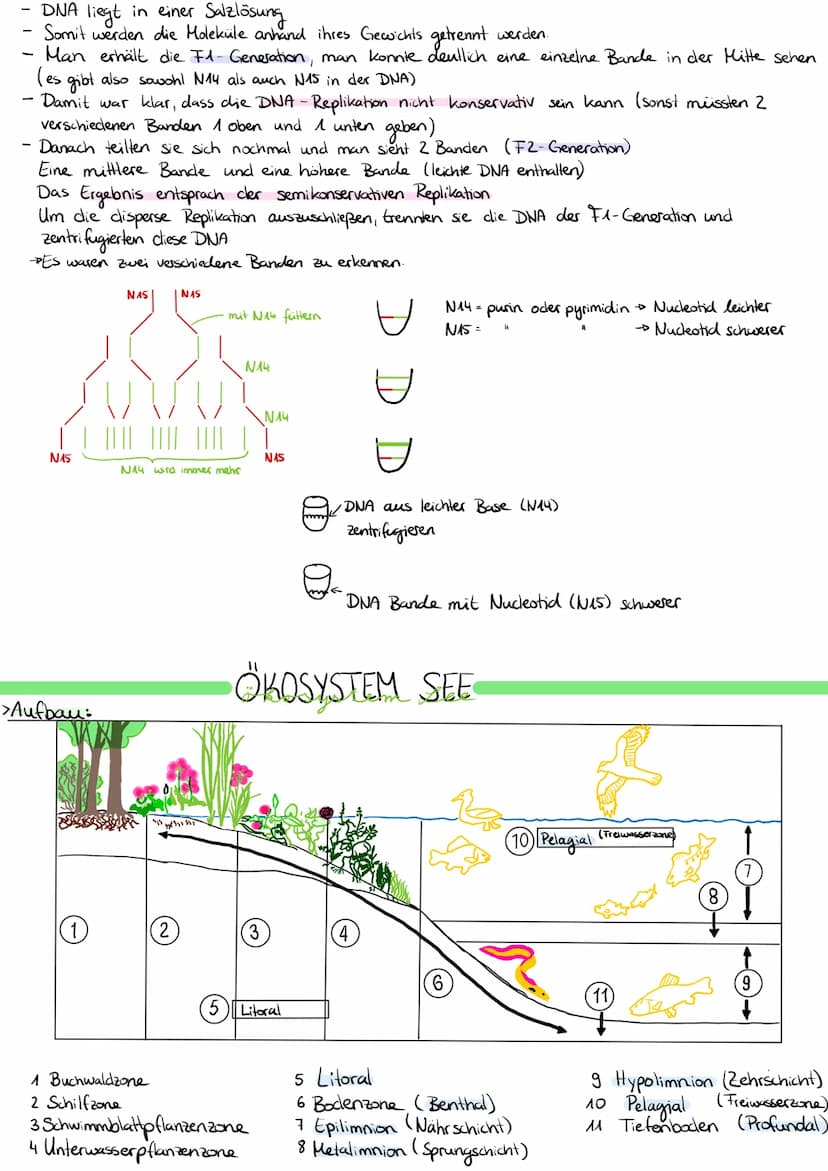 - DNA liegt in einer Salzlösung
- Somit werden die Moleküle anhand ihres Gewichts getrennt werden.
- Man erhält die F1-Generation, man konnte deutlich eine einzelne Bande in der Mitte sehen
(es gibt also sowohl N14 als auch N15 in der DNA)
- Damit war klar, dass die DNA-Replikation nicht konservativ sein kann (sonst müssten 2
verschiedenen Banden 1 oben und 1 unten geben)
- Danach teilten sie sich nochmal und man sieht 2 Banden (F2-Generation)
Eine mittlere Bande und eine höhere Bande (leichte DNA enthalten)
Das Ergebnis entsprach der semikonservativen Replikation
Um die disperse Replikation auszuschließen, trennten sie die DNA der F1-Generation und
zentrifugierten diese DNA
→Es waren zwei verschiedene Banden zu erkennen.
N15 N15
mit N14 füttern
N14
N14
N15 N15
N14 wird immer mehr
N14 = purin oder pyrimidin → Nucleotid leichter
N15 = " " → Nucleotid schwerer
DNA aus leichter Base (N14)
zentrifugieren
DNA Bande mit Nucleotid (N15) schwerer
ÖKOSYSTEM SEE
Ökosystem See
>Aufbau:
10 Pelagial (Freiwasserzone)
7
8
1
2
3
4
6
9
11
5 Litoral
1 Buchwaldzone
2 Schilfzone
3 Schwimmblattpflanzenzone
4 Unterwasserpflanzenzone
5 Litoral
6 Bodenzone (Benthal)
7 Epilimnion (Nährschicht)
8 Metalimnion (Sprungschicht)
9 Hypolimnion (Zehrschicht)
10 Pelagial (Freiwasserzone)
11 Tiefenboden (Profundal)